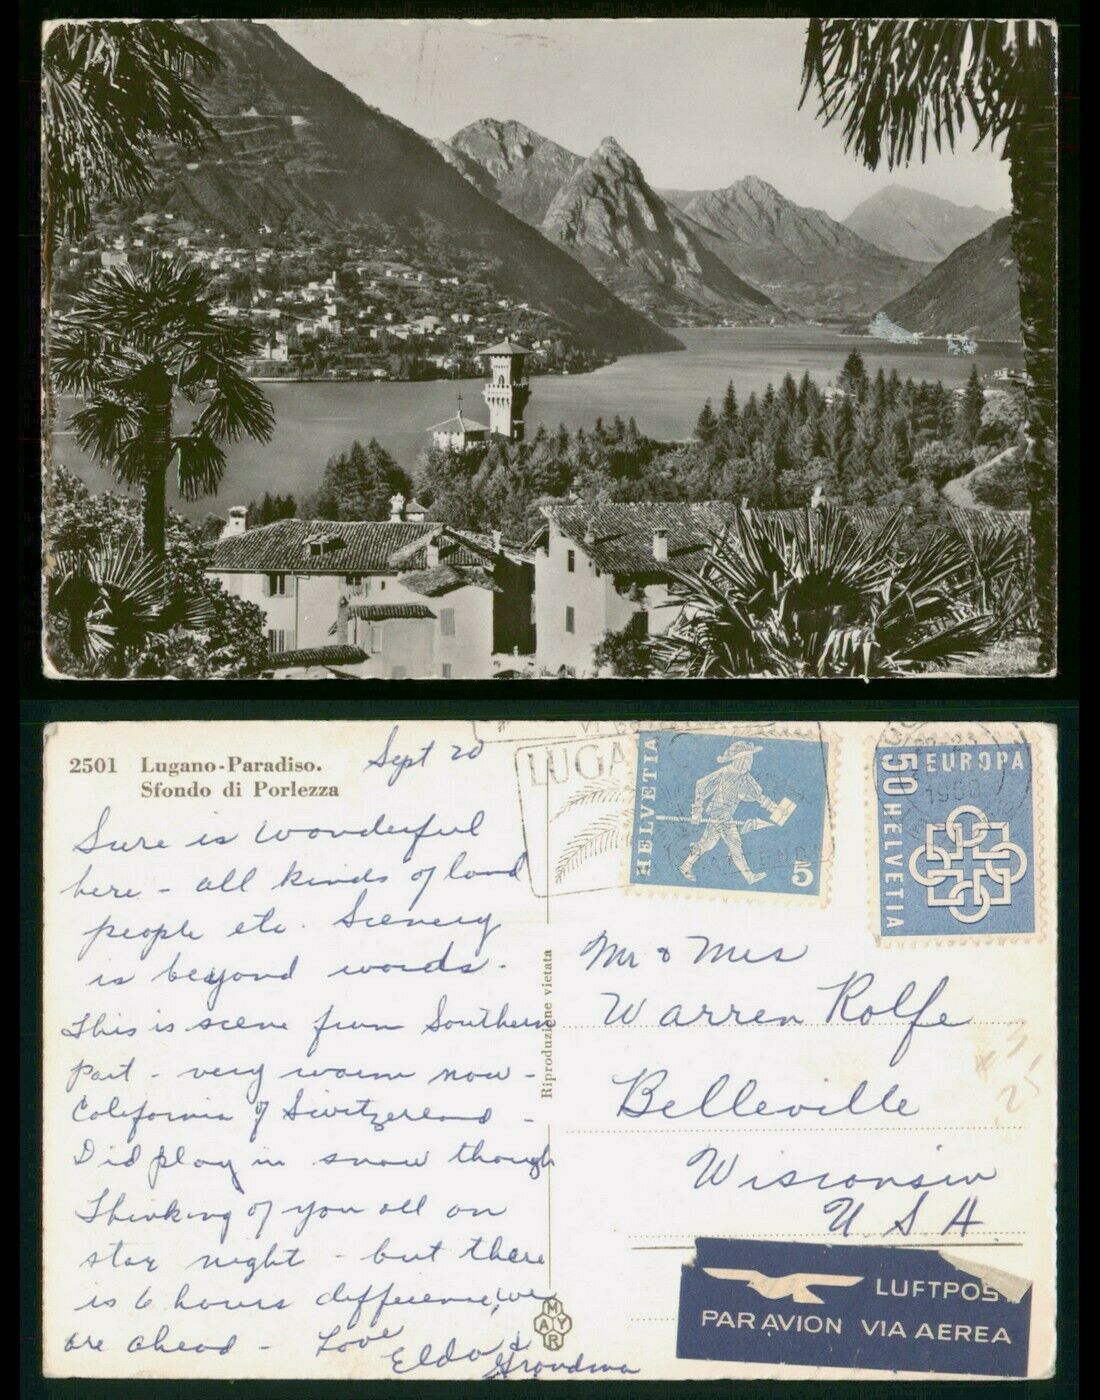 2501 Lugano-Paradiso.
Sfondo di Porlezza
Sept 20
Sure is wonderful
here - all kinds of land
people etc. Scenery
is beyond words.
This is scene from Southern
Part - very warm now -
California of Switzerland -
Did play in snow though
Thinking of you all on
star night - but there
is 6 hours difference, we
are ahead - Love
Elda &
Grandma
Riproduzione vietata
MAYR
LUGA
HELVETIA
5
50 HELVETIA
EUROPA
1960
Mr & Mrs
Warren Rolfe
Belleville
Wisconsin
U.S.A.
x 3
25
LUFTPOS
PAR AVION VIA AEREA